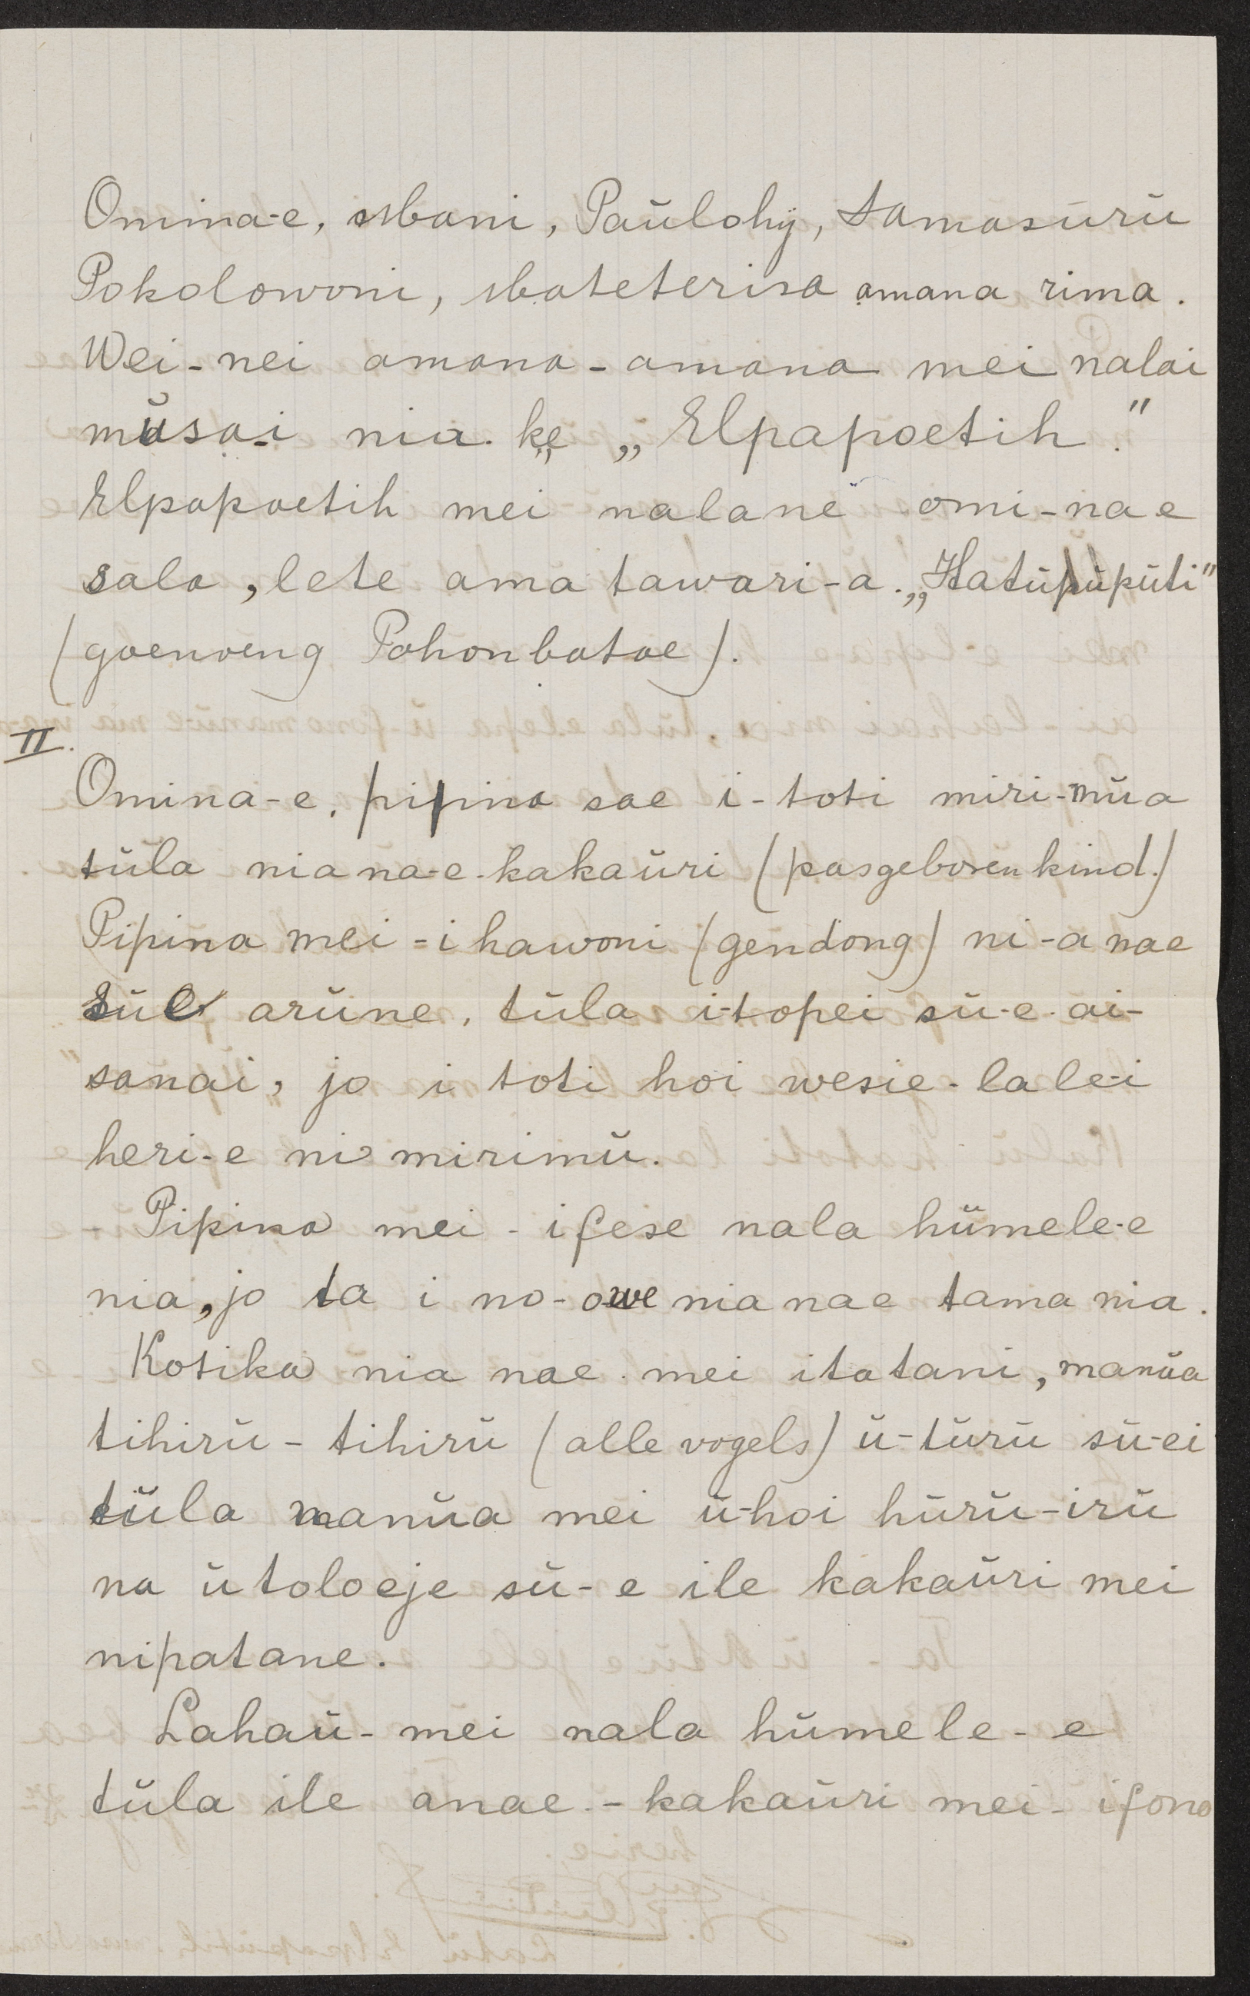 Omina-e, Mani, Paülohy, Samasürü
Pokolowoni, Mateterisa amana rima.
Wei-nei amana-amana mei nalai
müsa-i nia ke „Elpapoetih."
Elpapoetih mei nalane omi-na e
sala, lete ama tawari-a. „Hatüpüpüti"
(goenoeng Pohonbatoe).
II.
Omina-e, pipina sae i-toti miri-müa
tüla nia na-e kakaüri (pasgeboren kind.)
Pipina mei-i hawoni (gendong) ni-a nae
süe arüne, tüla i-topei sü-e ai-
sanai, jo i toti hoi wesie-lale-i
heri-e ni mirimü.
Pipina mei-ifese nala hümele-e
nia, jo ta i no-owe nia nae tama nia.
Kotika nia nae mei itatani, manüa
tihirü-tihirü (alle vogels) ü-türü sü-ei
tüla manüa mei ü-hoi hürü-irü
na ü toloeje sü-e ile kakaüri mei
nipatane.
Lahaü-mei nala hümele-e
tüla ile anae-kakaüri mei-ifono